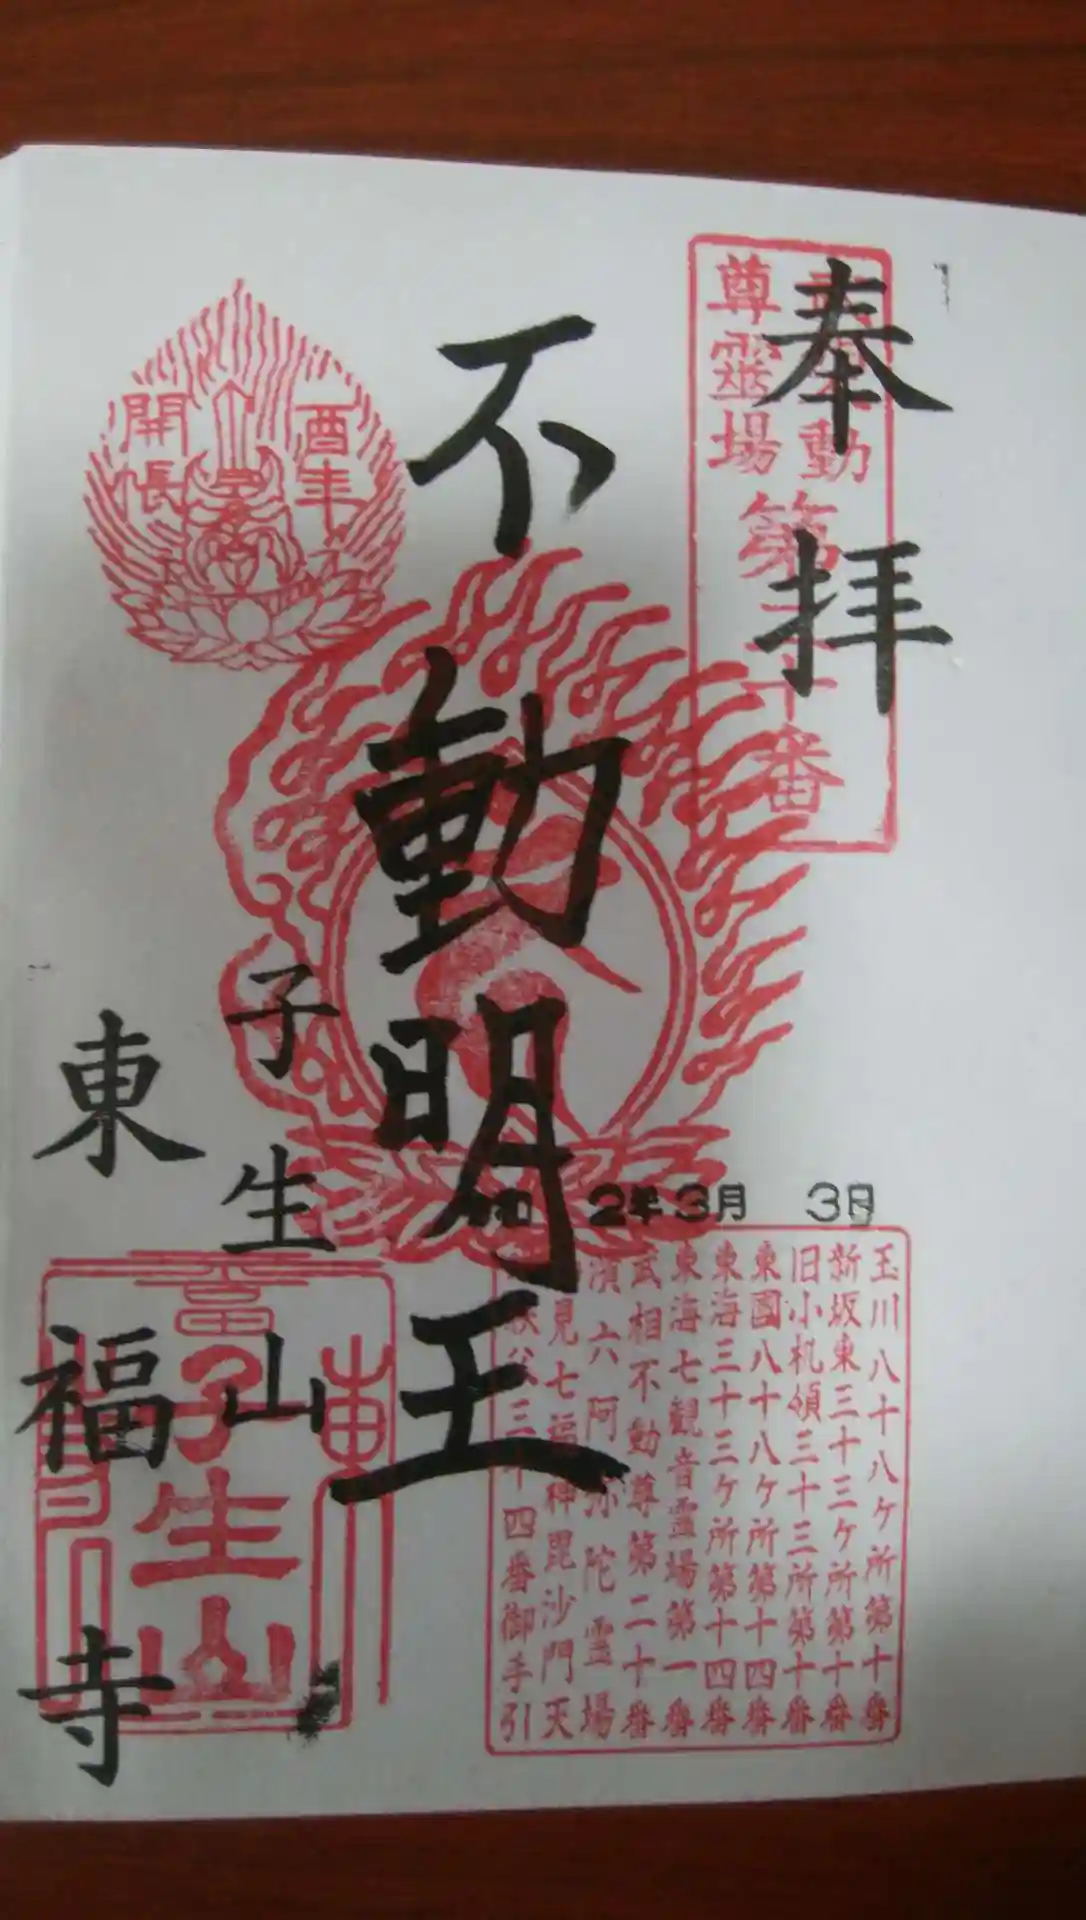 奉拝
動
尊靈場
第二十番
不動明王
酉年
開帳
2年3月 3日
玉川八十八ヶ所第十番
新坂東三十三ヶ所第十番
旧小机領三十三所第十番
東國八十八ヶ所第十四番
東海三十三ヶ所第十四番
東海七観音霊場第一番
武相不動尊第二十番
濱六阿弥陀霊場
見七福神毘沙門天
三十四番御手引
子生山
東福寺
子生山